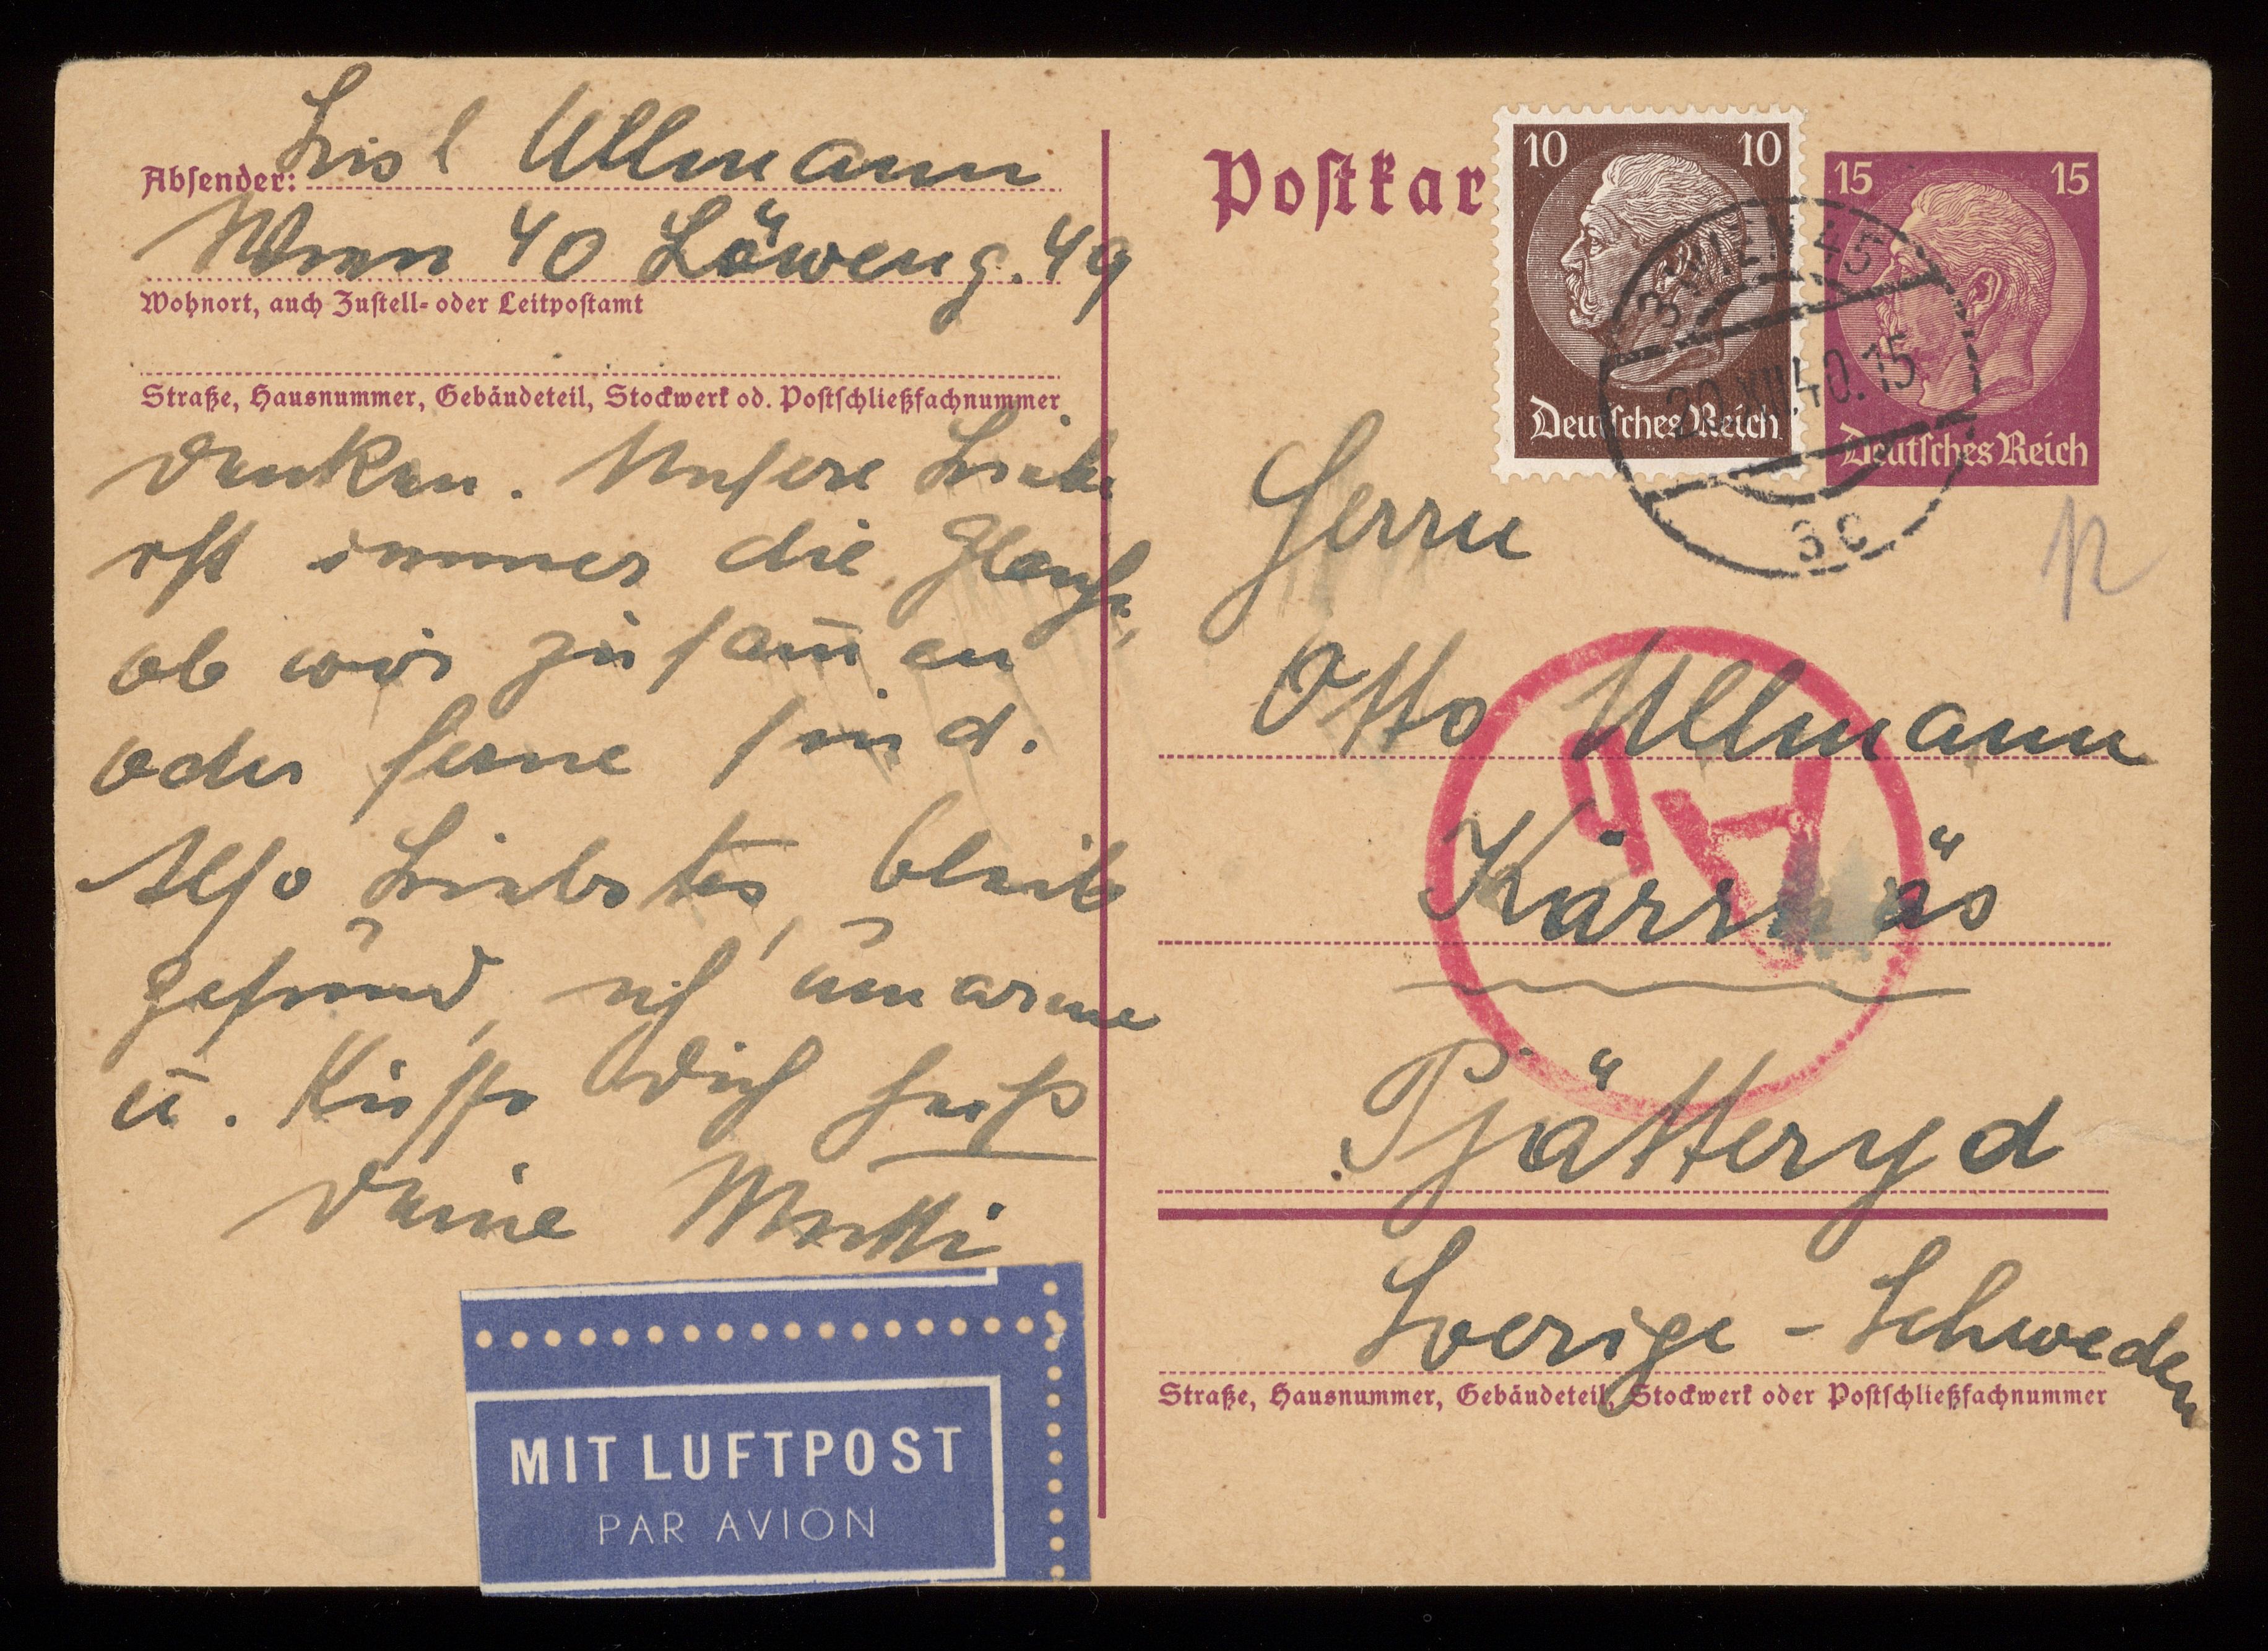 Absender: Lisl Ullmann
Wien 40 Löweng. 49
Wohnort, auch Zustell- oder Leitpostamt
Straße, Hausnummer, Gebäudeteil, Stockwerk od. Postschließfachnummer
denken. Unsere Liebe
ist immer die gleiche,
ob wir zusam̅en
oder ferne sind.
Also Liebstes, bleib
gesund, ich umarme
u. küsse Dich heiß
Deine Mutti
MIT LUFTPOST
PAR AVION
Postkar
10 10
Deutsches Reich
15 15
Deutsches Reich
3 WIEN 45
20.XII.40.15
3c
Herrn
Otto Ullmann
Ab
Kärrnäs
Pjätteryd
Sverige - Schweden
Straße, Hausnummer, Gebäudeteil, Stockwerk oder Postschließfachnummer